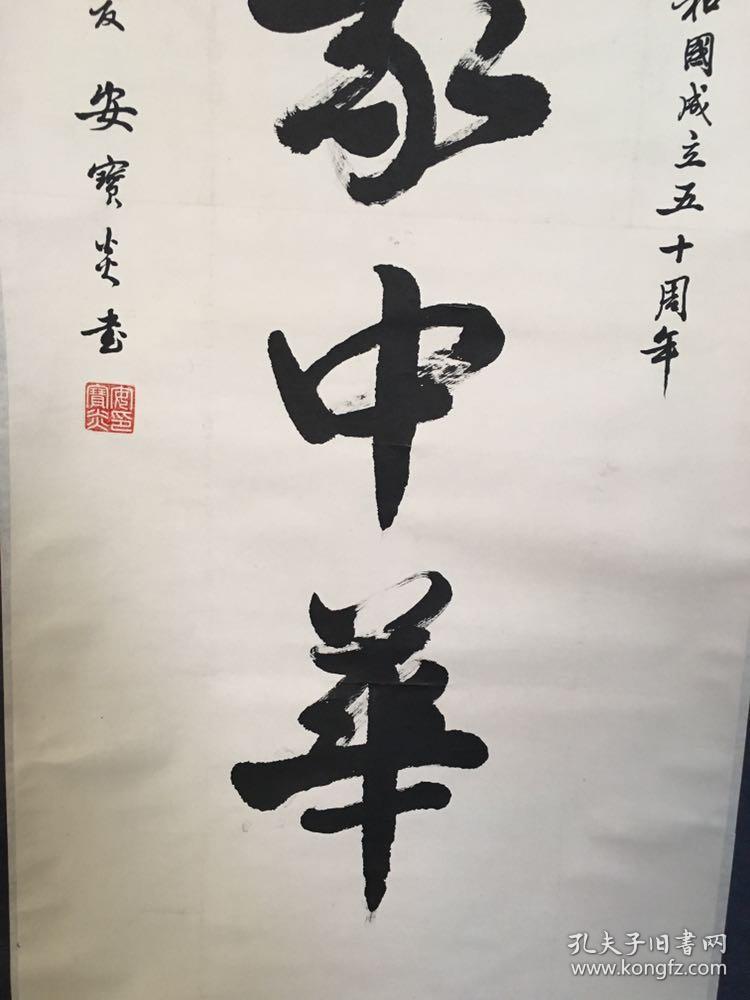 和國成立五十周年
中華
安寶炎书
安印寶炎
孔夫子旧書网
www.kongfz.com